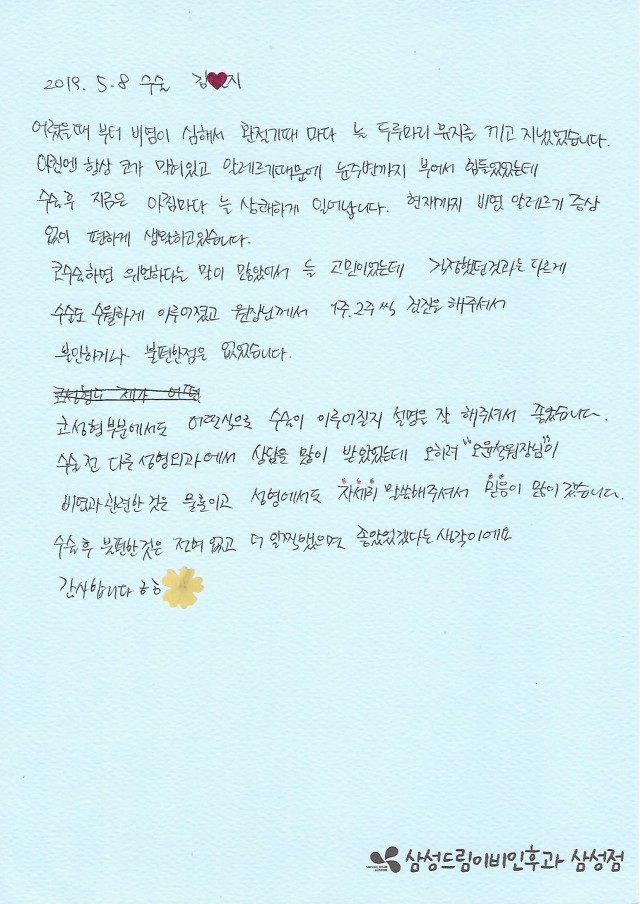 2019. 5.8 수술 김♥지
어렸을때 부터 비염이 심해서 환절기때 마다 늘 두루마리 뮤지를 끼고 지냈었습니다.
아침엔 항상 코가 막혀있고 알레르기때문에 눈주변까지 부어서 힘들었었는데
수술후 지금은 아침마다 늘 상쾌하게 일어납니다. 현재까지 비염 알레르기 증상
없이 편하게 생활하고있습니다.
코수술하면 위험하다는 말이 많았어서 늘 고민이었는데 걱정했던것과는 다르게
수술도 수월하게 이루어졌고 원장님께서 1주.2주씩 검진을 해주셔서
불안하거나 불편한점은 없었습니다.
코성형부분에서도 어떤식으로 수술이 이루어질지 설명을 잘 해주셔서 좋았습니다.
수술 전 다른 성형외과에서 상담을 많이 받았었는데 오히려 "오윤석원장님"이
비염과 관련한 것은 물론이고 성형에서도 자세히 말씀해주셔서 믿음이 많이 갔습니다.
수술후 불편한것은 전혀 없고 더 일찍했으면 좋았었겠다는 생각이에요
감사합니다 ㅎㅎ
삼성드림이비인후과 삼성점